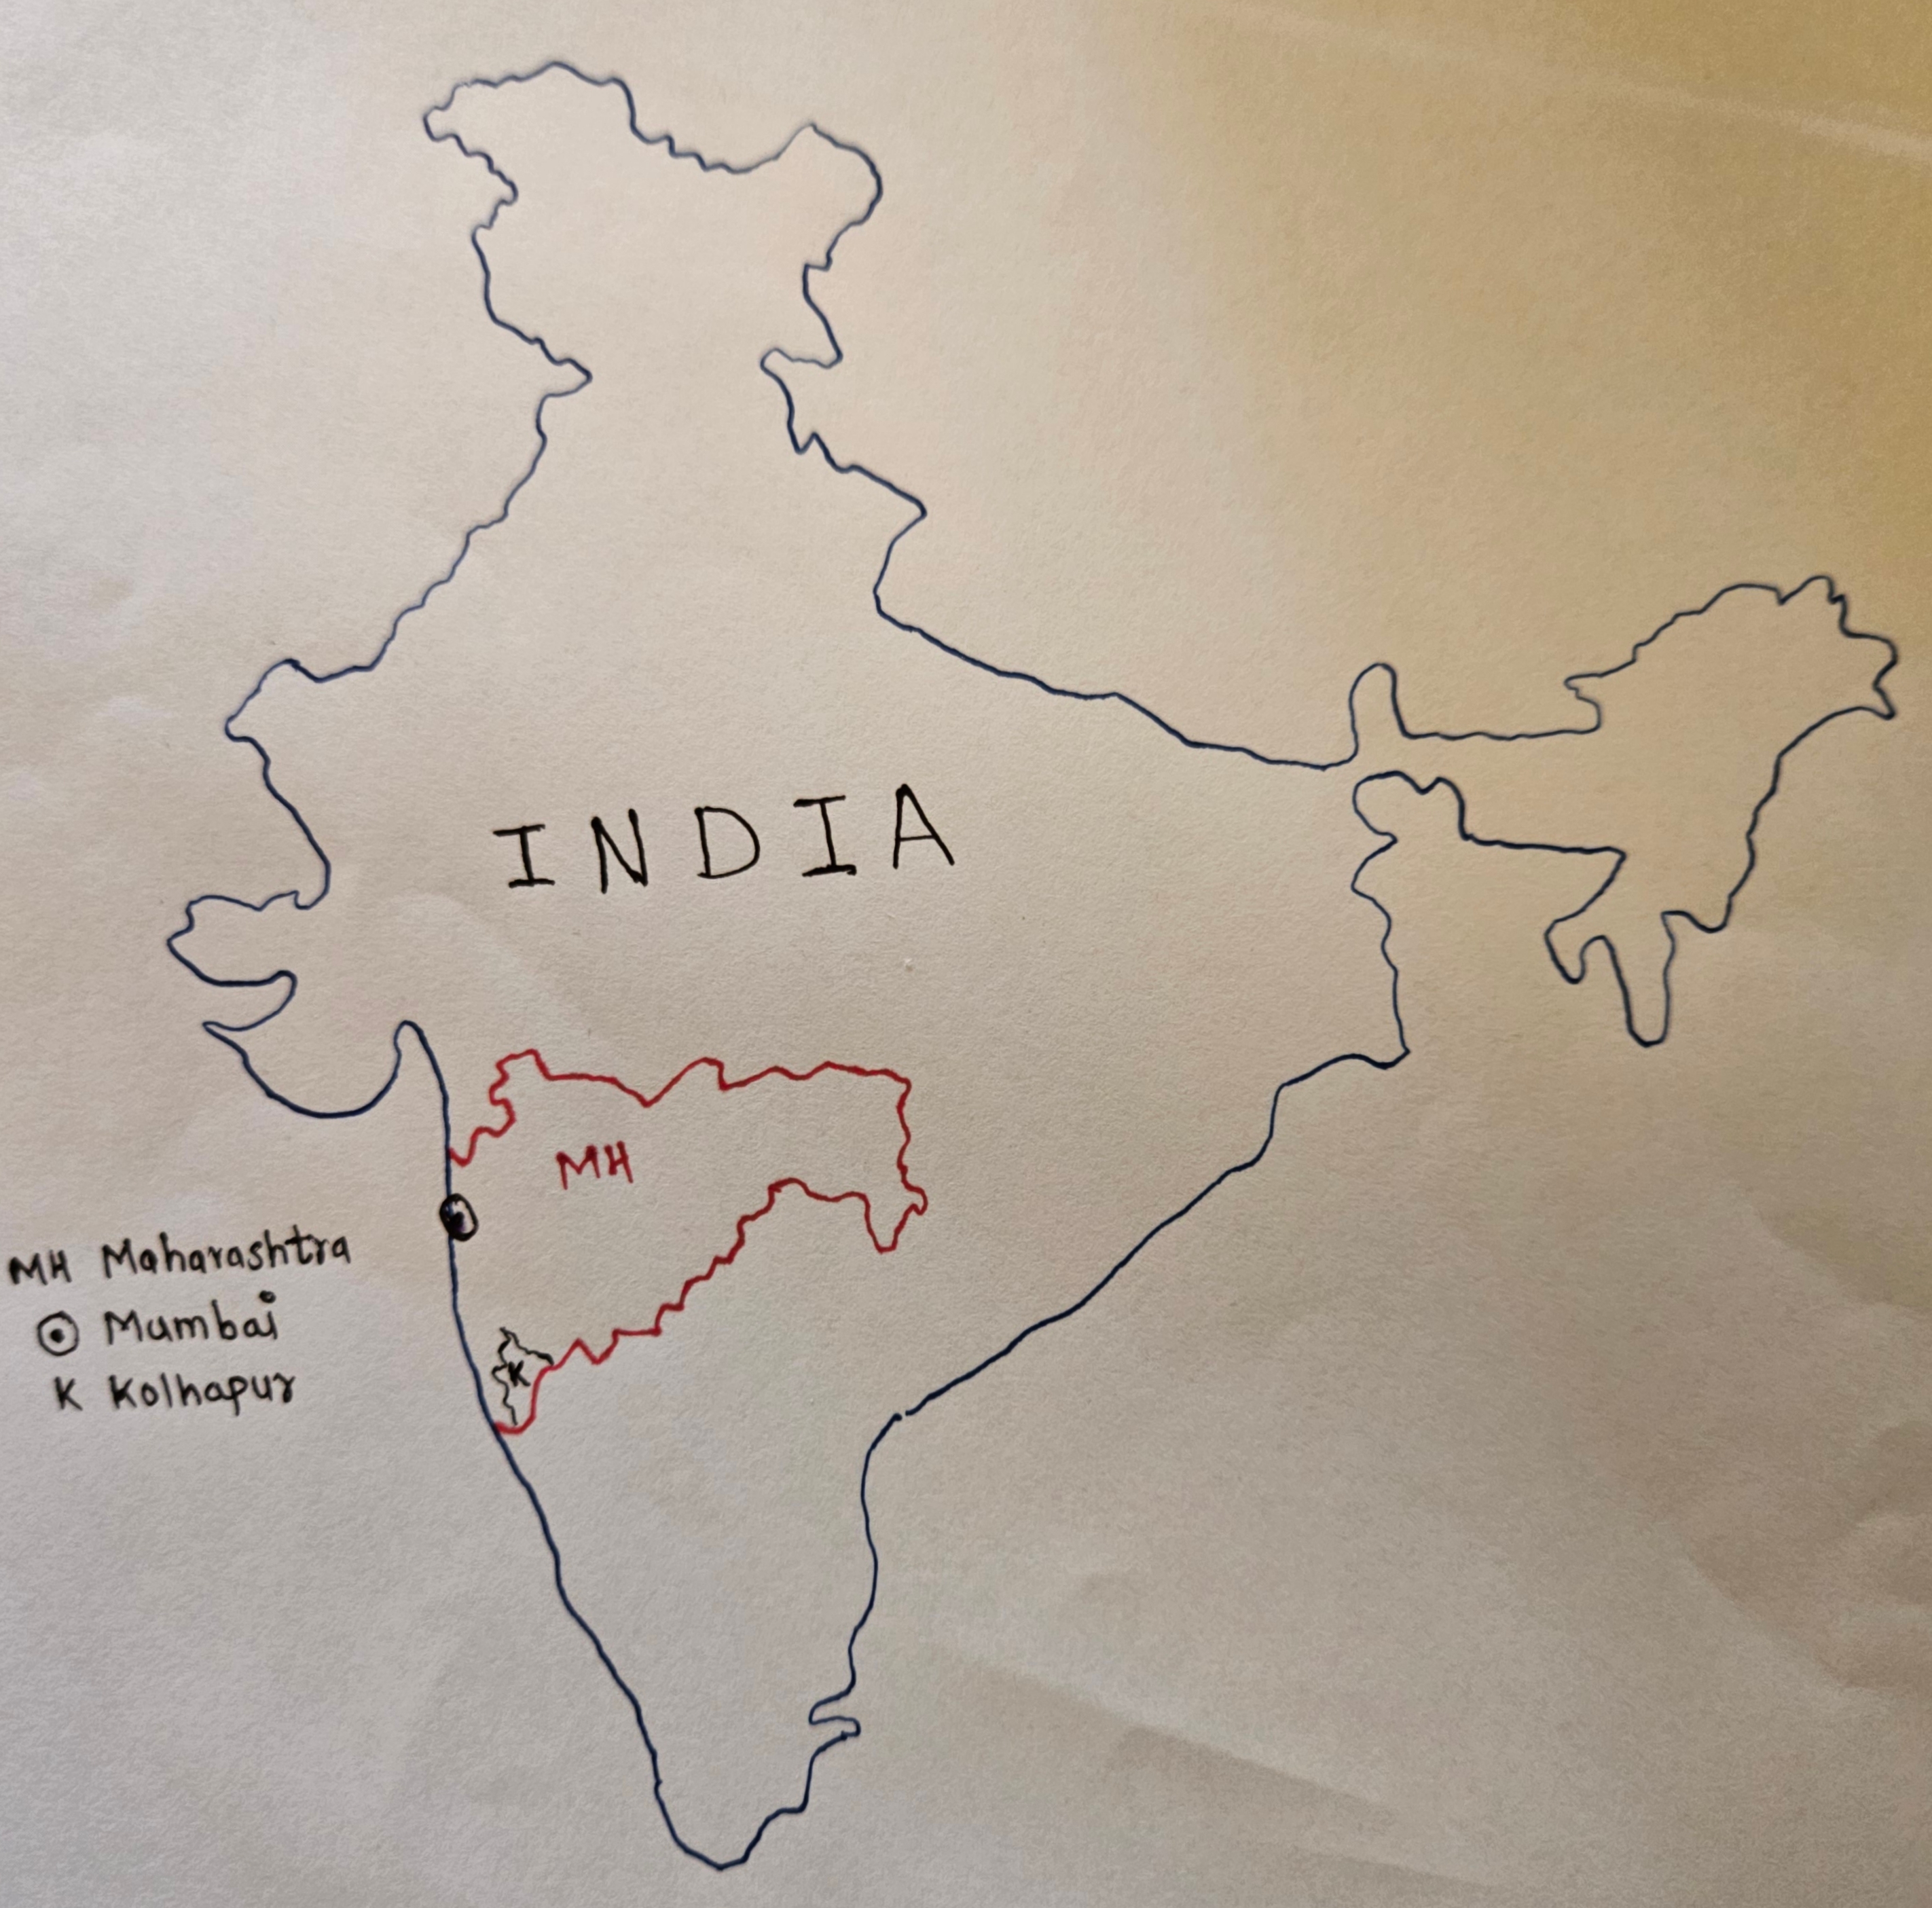 INDIA
MH
MH Maharashtra
Mumbai
K Kolhapur
K